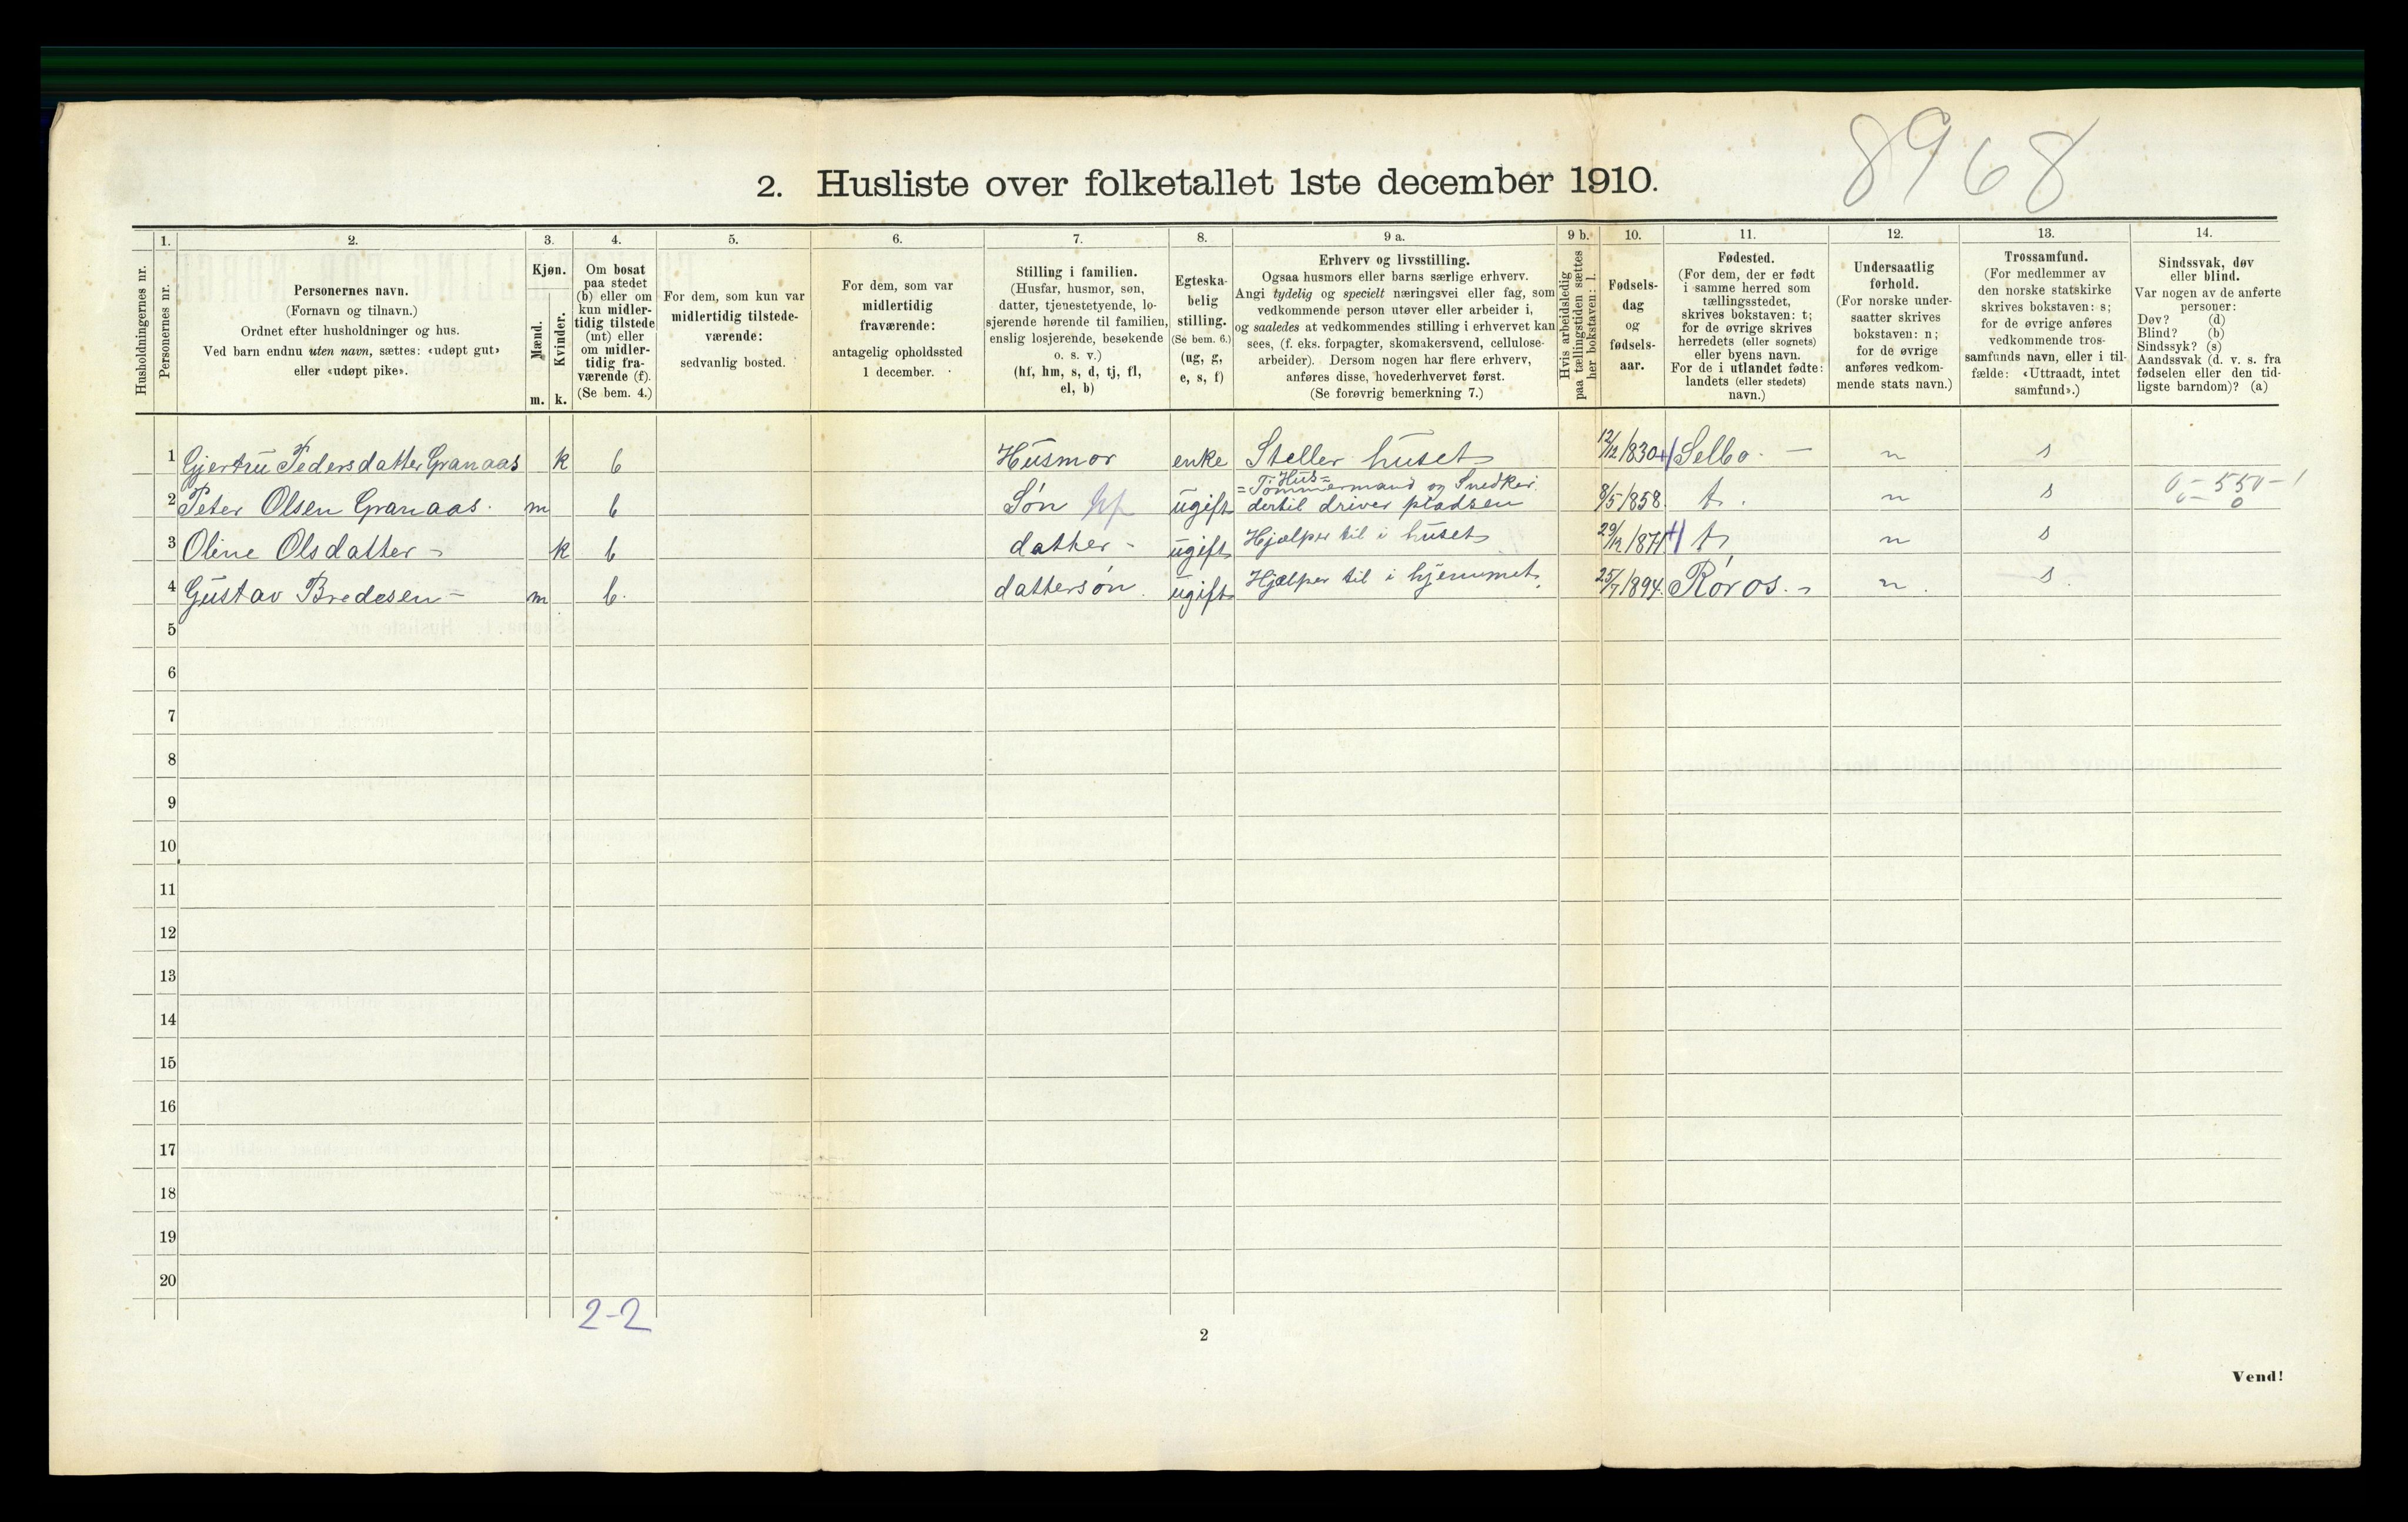 8968
2. Husliste over folketallet 1ste december 1910.
Husholdningernes nr.
1.
Personernes nr.
2.
Personernes navn.
(Fornavn og tilnavn.)
Ordnet efter husholdninger og hus.
Ved barn endnu uten navn, sættes: «udøpt gut»
eller «udøpt pike».
3.
Kjøn.
Mænd.
Kvinder.
m. k.
4.
Om bosat
paa stedet
(b) eller om
kun midler-
tidig tilstede
(mt) eller
om midler-
tidig fra-
værende (f).
(Se bem. 4.)
5.
For dem, som kun var
midlertidig tilstede-
værende:
sedvanlig bosted.
6.
For dem, som var
midlertidig
fraværende:
antagelig opholdssted
1 december.
7.
Stilling i familien.
(Husfar, husmor, søn,
datter, tjenestetyende, lo-
sjerende hørende til familien,
enslig losjerende, besøkende
o. s. v.)
(hf, hm, s, d, tj, fl,
el, b)
8.
Egteska-
belig
stilling.
(Se bem. 6.)
(ug, g,
e, s, f)
9 a.
Erhverv og livsstilling.
Ogsaa husmors eller barns særlige erhverv.
Angi tydelig og specielt næringsvei eller fag, som
vedkommende person utøver eller arbeider i,
og saaledes at vedkommendes stilling i erhvervet kan
sees, (f. eks. forpagter, skomakersvend, cellulose-
arbeider). Dersom nogen har flere erhverv,
anføres disse, hovederhvervet først.
(Se forøvrig bemerkning 7.)
9 b.
Hvis arbeidsledig
paa tællingstiden sættes
her bokstaven: l.
10.
Fødsels-
dag
og
fødsels-
aar.
11.
Fødested.
(For dem, der er født
i samme herred som
tællingsstedet,
skrives bokstaven: t;
for de øvrige skrives
herredets (eller sognets)
eller byens navn.
For de i utlandet fødte:
landets (eller stedets)
navn.)
12.
Undersaatlig
forhold.
(For norske under-
saatter skrives
bokstaven: n;
for de øvrige
anføres vedkom-
mende stats navn.)
13.
Trossamfund.
(For medlemmer av
den norske statskirke
skrives bokstaven: s;
for de øvrige anføres
vedkommende tros-
samfunds navn, eller i til-
fælde: «Uttraadt, intet
samfund».)
14.
Sindssvak, døv
eller blind.
Var nogen av de anførte
personer:
Døv? (d)
Blind? (b)
Sindssyk? (s)
Aandssvak (d. v. s. fra
fødselen eller den tid-
ligste barndom)? (a)
1 Gjertrü Pedersdatter Granaas k b Husmor enke Steller huset 12/12 1830 Selbo. — n s
2 Peter Olsen Granaas. m b Søn hf ugift =Hus=
Tømmermand og Snedker.
dertil driver pladsen 8/5 1858 t. n s 0-550-1
0
3 Oline Olsdatter - k b datter - ugift Hjælper til i huset 29/12 1871 t n s
4 Gustav Bredesen - m b. dattersøn. ugift Hjælper til i hjemmet. 25/7 1894. Røros. - n. s.
5
6
7
8
9
10
11
12
13
14
15
16
17
18
19
20
2-2
2
Vend!